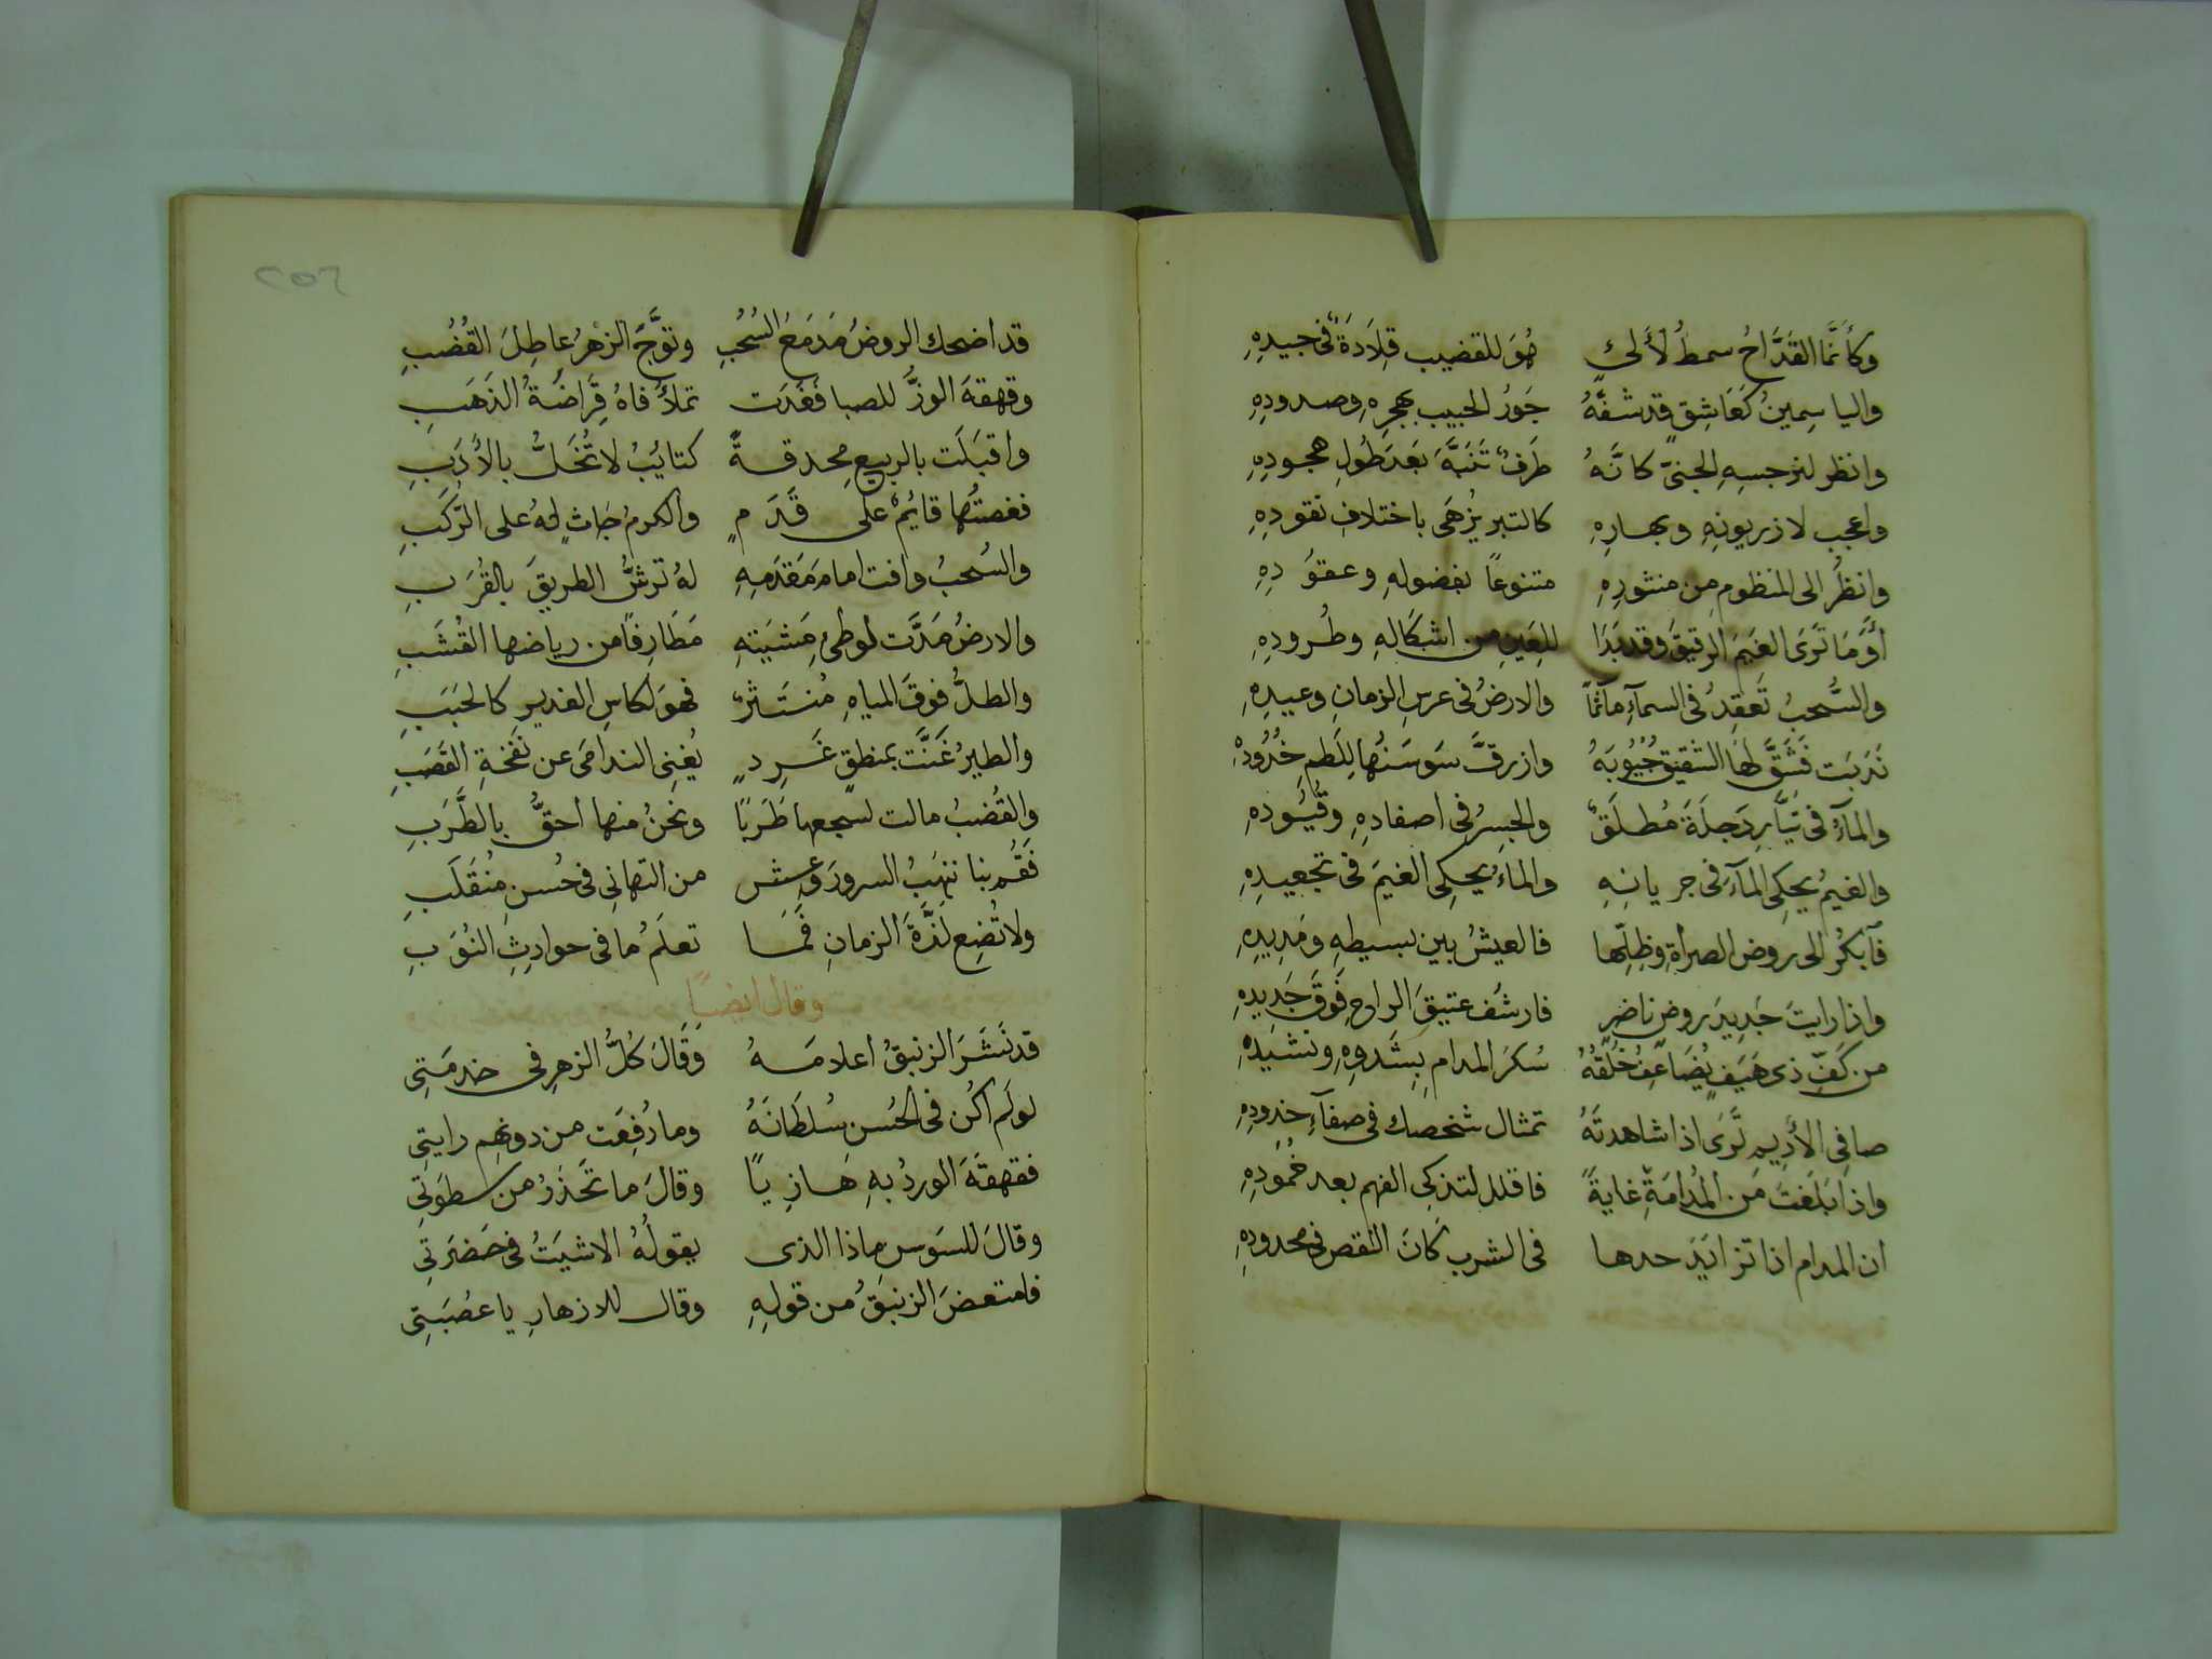 وكأنَّما القَدَّاحُ سمطُ لألئٍ هُوَ للقضيب قِلَادَةٌ فى جيدِهِ
والياسِمينُ كَعَاشِقٍ قد شفَّهُ جَوْرُ الحبيب بهجرِهِ وصدودِهِ
وانظر لنرجسِهِ الجنىّ كانَّهُ طَرْفٌ تَنَبَّهَ بَعْدَ طُولِ هجودِهِ
واعجب لاذريونِهِ وبهارِهِ كالتبر يُزْهَى باختلافِ نقودِهِ
وانظُر الى المنظوم من منثورِهِ متنوعًا بفضولهِ وعقودِهِ
أوَمَا تَرَى الغَيمَ الرقيقَ وقد بَدَا للعَينِ من اشكالِهِ وطُرودِهِ
والسُّحبُ تَعقِدُ فى السمآءِ مآتمًا والارضُ فى عرسِ الزمانِ وعيدِهِ
نَدَبَت فَشَقَّ لها الشقيق جُيُوبَهُ وازرقَّ سَوسَنُها لِلَطمِ خُدُودِهِ
والمآءُ فى تيَّارِ دَجلَةَ مُطلَقٌ والجِسرُ فى اصفادِهِ وقُيُودِهِ
والغيمُ يحكِى المآءَ فى جريانِهِ والماءُ يحكِى الغيمَ فى تجعيدِهِ
فآبكُر الى روض الصراةِ وظِلِّها فالعيشُ بين بسيطهِ ومَدِيدِهِ
واذا رايتَ جَدِيدَ روضٍ ناضِرٍ فارشُف عتيقَ الراحِ فَوقَ جَدِيدِهِ
من كَفّ ذى هَيَفٍ يُضَاعِفُ خُلقُهُ سُكرَ المدام بِشَدوِهِ ونشيدِهِ
صافِى الأَدِيمِ تَرَى اذا شاهدتَهُ تمثال شخصك فى صفآءِ خدودِهِ
واذا بَلَغتَ من المُدامَةِ غايةً فاقلل لتذكى الفهم بعد خمُودِهِ
ان المدام اذا تزايَدَ حدها فى الشرب كَانَ النقص فى محدودِهِ
٢٥٦
قد اضحك الروضُ مَدمَعَ السُحُبِ وتوَّجَ الزهرُ عاطِلَ القُضُبِ
وقهقهَ الوردُّ للصبا فَغَدَت تملأُ فاهُ قِرَاضَةُ الذَهَبِ
واقبَلَت بالربيعِ مِحدقةً كتائبُ لا تُخَلُّ بالأَدَبِ
فغصنُها قايُمٌ على قَدَمٍ والكرمُ جاثٍ لهُ على الرَّكَبِ
والسُحبُ وافت امام مَقدَمِهِ لهُ ترشُّ الطريقَ بالقُرَبِ
والارضُ مَدَّت لوطئِ مَشيَتِهِ مَطَارِفًا من رياضها القُشَبِ
والطلُّ فوقَ المياهِ مُنتَثرٌ فهوَ لكاسِ الغديرِ كالحَبَبِ
والطيرُ غَنَّت بمنطقٍ غَرِدٍ يُغنِى الندامَى عن نَفخَةِ القَصَبِ
والقُضبُ مالت لسجعها طَرَبًا ونحنُ منها احقُّ بالطَّرَبِ
فَقُم بنا ننهَبُ السرورَ وعِش من التهانِى فى حُسنِ مُنقَلَبِ
ولا تُضِع لَذَّةَ الزمانِ فَمَا تعلَمُ ما فى حوادِثِ النُوَبِ
وقال ايضًا
قد نَشَرَ الزنبقُ اعلامَهُ وَقَالَ كُلُّ الزهرِ فى خدمَتِى
لو لَم اكُن فى الحُسنِ سُلطَانَهُ وما رُفِعَت من دونهِم رايتِى
فقهقَهَ الوردُ بهِ هازِيًا وقالَ ما تَحذَرُ من سطوَتِى
وقالَ للسَوسِ ماذا الذى يقولُهُ الاشيَبُ فى حَضرَتِى
فامتعضَ الزنبَقُ من قولِهِ وقال للازهارِ يا عصُبَتِى